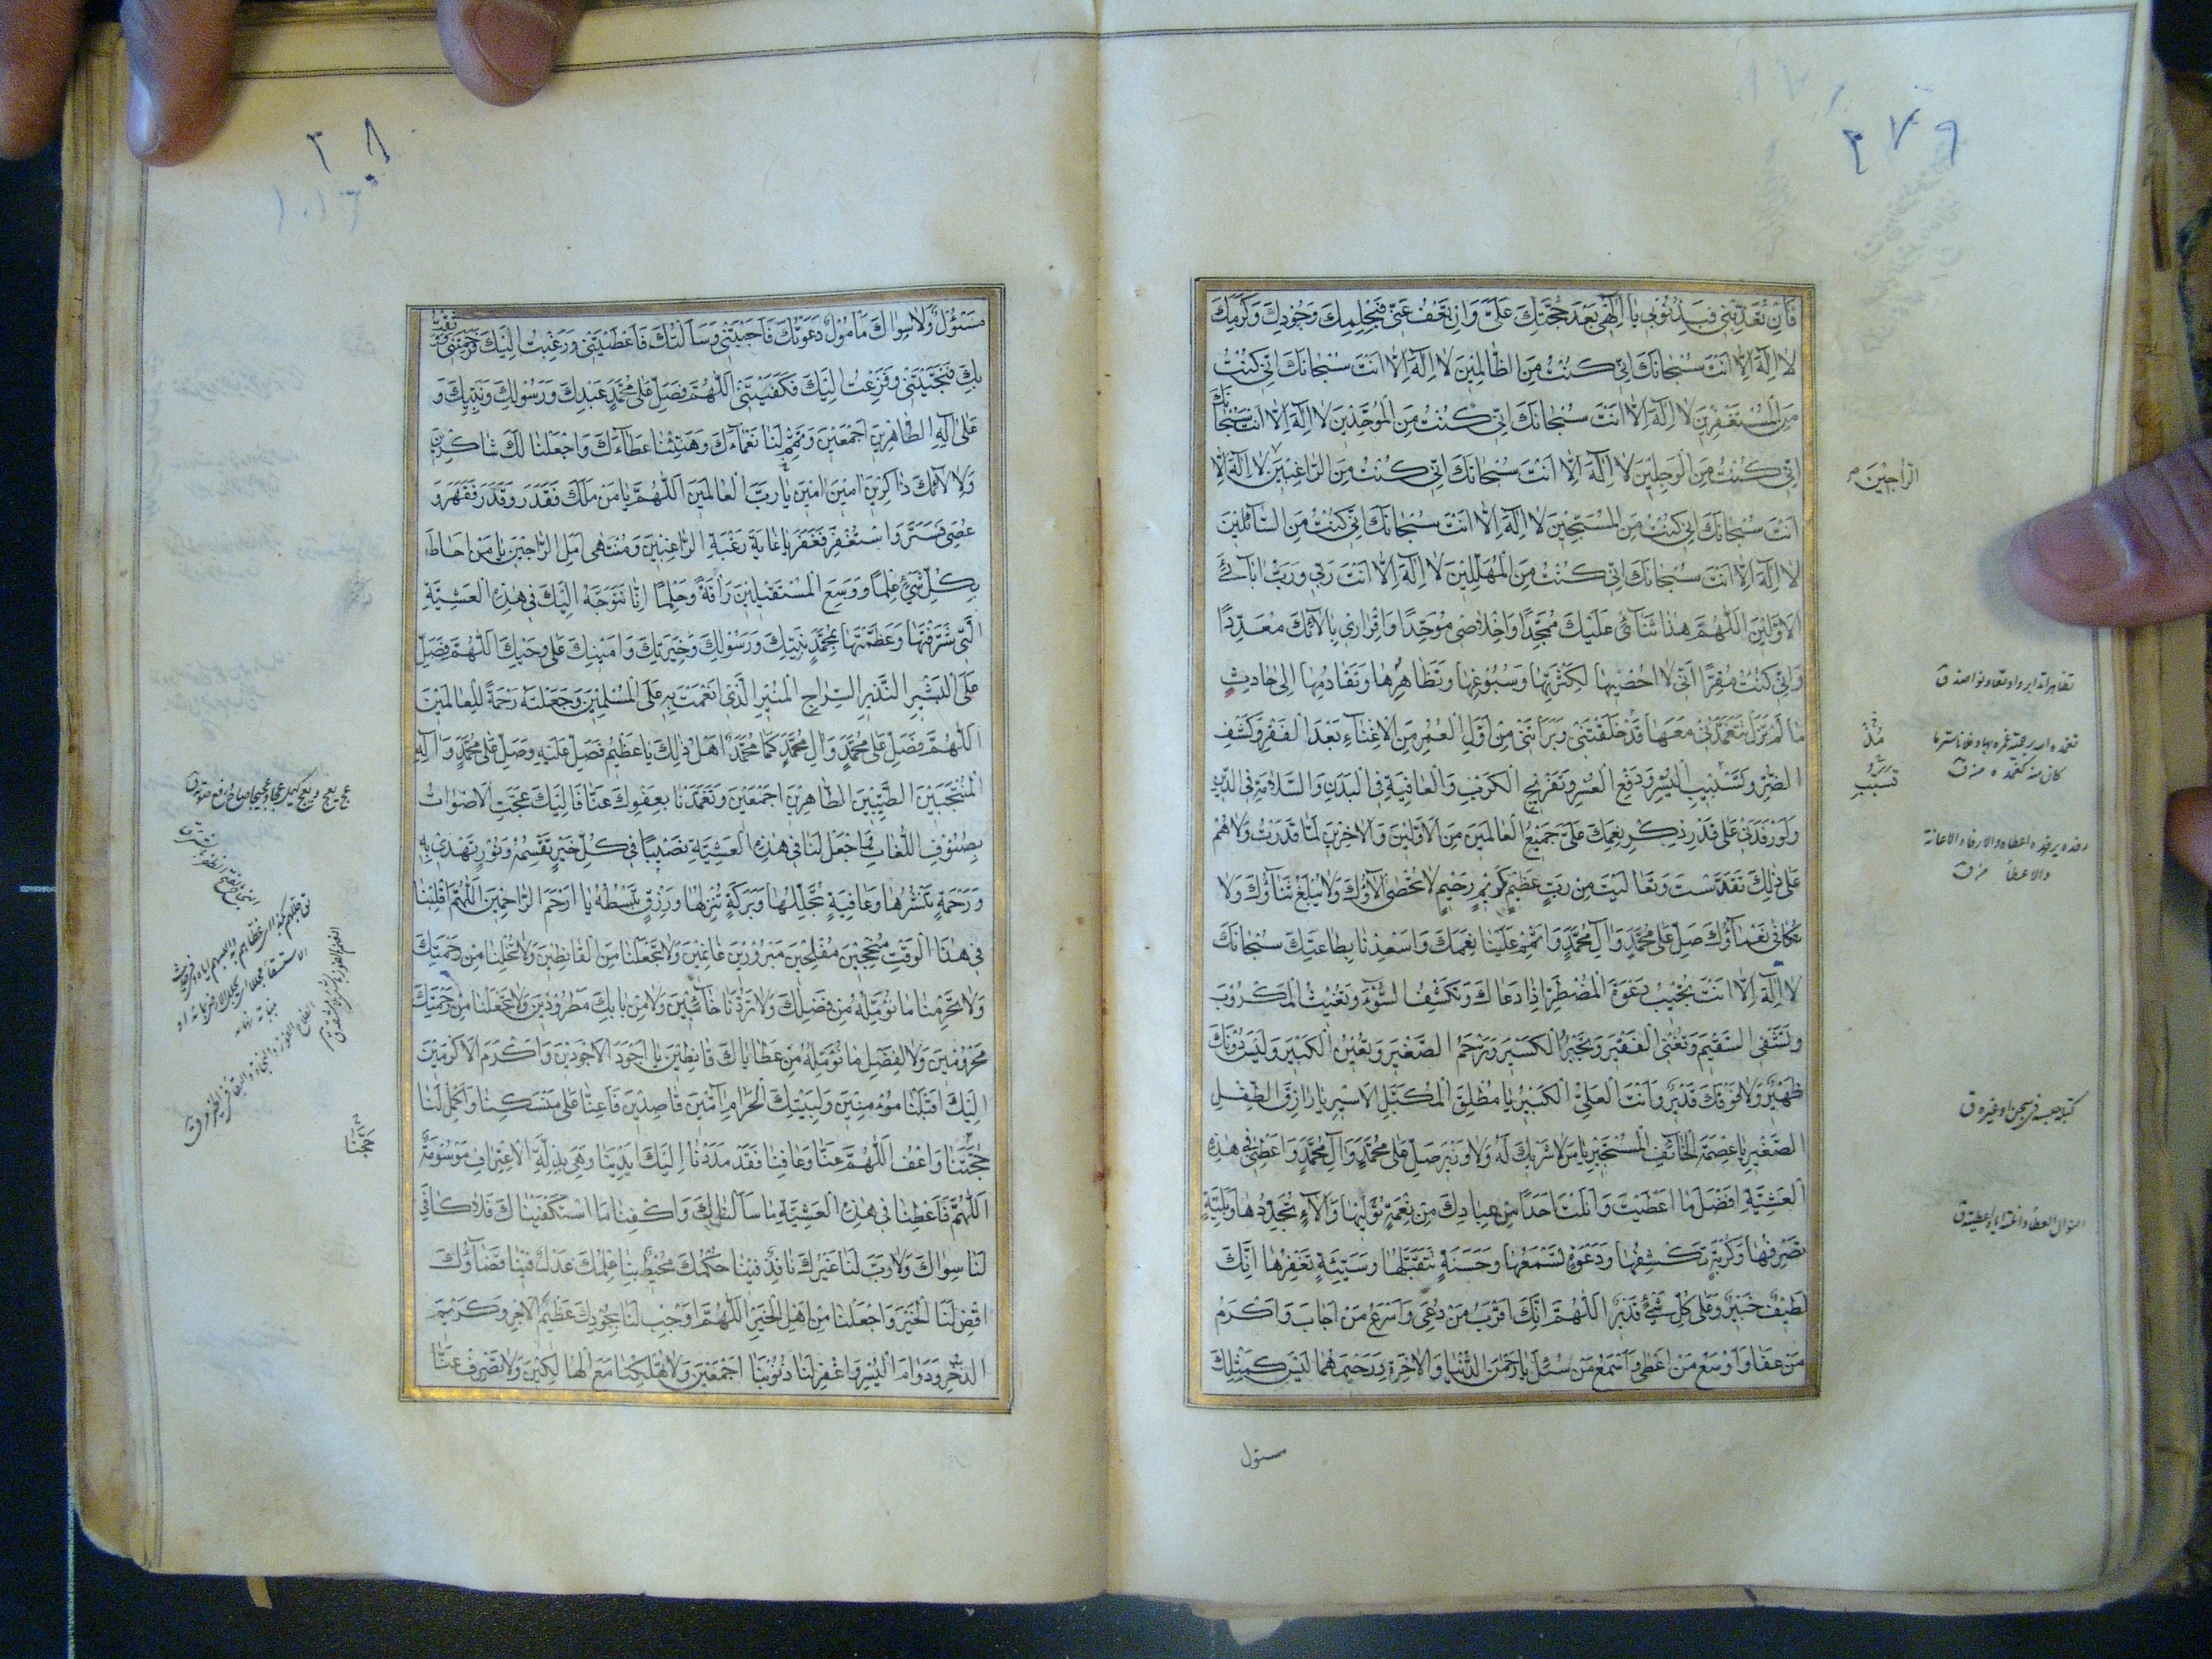 ٢٧٩
فَاِنْ تُعَذِّبْنِي فَبِذُنُوبِي يَا اِلٰهِي بَعْدَ حُجَّتِكَ عَلَيَّ وَاِنْ تَعْفُ عَنِّي فَبِحِلْمِكَ وَجُودِكَ وَكَرَمِكَ
لَا اِلٰهَ اِلَّا اَنْتَ سُبْحَانَكَ اِنِّي كُنْتُ مِنَ الظَّالِمِينَ لَا اِلٰهَ اِلَّا اَنْتَ سُبْحَانَكَ اِنِّي كُنْتُ
مِنَ الْمُسْتَغْفِرِينَ لَا اِلٰهَ اِلَّا اَنْتَ سُبْحَانَكَ اِنِّي كُنْتُ مِنَ الْمُوَحِّدِينَ لَا اِلٰهَ اِلَّا اَنْتَ سُبْحَانَكَ
اِنِّي كُنْتُ مِنَ الْوَجِلِينَ لَا اِلٰهَ اِلَّا اَنْتَ سُبْحَانَكَ اِنِّي كُنْتُ مِنَ الرَّاغِبِينَ لَا اِلٰهَ اِلَّا
الرَّاجِينَ
اَنْتَ سُبْحَانَكَ اِنِّي كُنْتُ مِنَ الْمُسَبِّحِينَ لَا اِلٰهَ اِلَّا اَنْتَ سُبْحَانَكَ اِنِّي كُنْتُ مِنَ السَّائِلِينَ
لَا اِلٰهَ اِلَّا اَنْتَ سُبْحَانَكَ اِنِّي كُنْتُ مِنَ الْمُهَلِّلِينَ لَا اِلٰهَ اِلَّا اَنْتَ رَبِّي وَرَبُّ اٰبَائِيَ
الْاَوَّلِينَ اَللّٰهُمَّ هٰذَا ثَنَائِي عَلَيْكَ مُمَجِّدًا وَاِخْلَاصِي مُوَحِّدًا وَاِقْرَارِي بِاٰلَائِكَ مُعَدِّدًا
وَاِنْ كُنْتُ مُقِرًّا اَنِّي لَا اُحْصِيهَا لِكَثْرَتِهَا وَسُبُوغِهَا وَتَظَاهُرِهَا وَتَقَادُمِهَا اِلٰى حَادِثٍ
مَا لَمْ تَزَلْ تَتَغَمَّدُنِي مَعَهَا قَدْ خَلَقْتَنِي وَبَرَأْتَنِي مِنْ اَوَّلِ الْعُمُرِ مِنَ الْاِغْنَاءِ بَعْدَ الْفَقْرِ وَكَشْفِ
الضُّرِّ وَتَسْبِيبِ الْيُسْرِ وَدَفْعِ الْعُسْرِ وَتَفْرِيجِ الْكَرْبِ وَالْعَافِيَةِ فِي الْبَدَنِ وَالسَّلَامَةِ فِي الدِّينِ
وَلَوْ رَفَدَنِي عَلٰى قَدْرِ ذِكْرِ نِعَمِكَ عَلَيَّ جَمِيعُ الْعَالَمِينَ مِنَ الْاَوَّلِينَ وَالْاٰخِرِينَ لَمَا قَدَرْتُ وَلَا هُمْ
عَلٰى ذٰلِكَ تَقَدَّسْتَ وَتَعَالَيْتَ مِنْ رَبٍّ عَظِيمٍ كَرِيمٍ رَحِيمٍ لَا تُحْصٰى اٰلَاؤُكَ وَلَا يُبْلَغُ ثَنَاؤُكَ وَلَا
تُكَافٰى نَعْمَاؤُكَ صَلِّ عَلٰى مُحَمَّدٍ وَاٰلِ مُحَمَّدٍ وَاَتْمِمْ عَلَيْنَا نِعَمَكَ وَاَسْعِدْنَا بِطَاعَتِكَ سُبْحَانَكَ
لَا اِلٰهَ اِلَّا اَنْتَ تُجِيبُ دَعْوَةَ الْمُضْطَرِّ اِذَا دَعَاكَ وَتَكْشِفُ السُّوءَ وَتُغِيثُ الْمَكْرُوبَ
وَتَشْفِي السَّقِيمَ وَتُغْنِي الْفَقِيرَ وَتَجْبُرُ الْكَسِيرَ وَتَرْحَمُ الصَّغِيرَ وَتُعِينُ الْكَبِيرَ وَلَيْسَ دُونَكَ
ظَهِيرٌ وَلَا فَوْقَكَ قَدِيرٌ وَاَنْتَ الْعَلِيُّ الْكَبِيرُ يَا مُطْلِقَ الْمُكَبَّلِ الْاَسِيرِ يَا رَازِقَ الطِّفْلِ
الصَّغِيرِ يَا عِصْمَةَ الْخَائِفِ الْمُسْتَجِيرِ يَا مَنْ لَا شَرِيكَ لَهُ وَلَا وَزِيرَ صَلِّ عَلٰى مُحَمَّدٍ وَاٰلِ مُحَمَّدٍ وَاَعْطِنِي فِي هٰذِهِ
الْعَشِيَّةِ اَفْضَلَ مَا اَعْطَيْتَ وَاَنَلْتَ اَحَدًا مِنْ عِبَادِكَ مِنْ نِعْمَةٍ تُوَلِّيهَا وَاٰلَاءٍ تُجَدِّدُهَا وَبَلِيَّةٍ
تَصْرِفُهَا وَكُرْبَةٍ تَكْشِفُهَا وَدَعْوَةٍ تَسْمَعُهَا وَحَسَنَةٍ تَتَقَبَّلُهَا وَسَيِّئَةٍ تَغْفِرُهَا اِنَّكَ
لَطِيفٌ خَبِيرٌ وَعَلٰى كُلِّ شَيْءٍ قَدِيرٌ اَللّٰهُمَّ اِنَّكَ اَقْرَبُ مَنْ دُعِيَ وَاَسْرَعُ مَنْ اَجَابَ وَاَكْرَمُ
مَنْ عَفَا وَاَوْسَعُ مَنْ اَعْطٰى وَاَسْمَعُ مَنْ سُئِلَ يَا رَحْمٰنَ الدُّنْيَا وَالْاٰخِرَةِ وَرَحِيمَهُمَا لَيْسَ كَمِثْلِكَ
مسئول
٢٨٠
مَسْئُولٌ وَلَا سِوَاكَ مَأْمُولٌ دَعَوْتُكَ فَاَجَبْتَنِي وَسَاَلْتُكَ فَاَعْطَيْتَنِي وَرَغِبْتُ اِلَيْكَ فَرَحِمْتَنِي وَ
بِكَ فَنَجَّيْتَنِي وَفَزِعْتُ اِلَيْكَ فَكَفَيْتَنِي اَللّٰهُمَّ فَصَلِّ عَلٰى مُحَمَّدٍ عَبْدِكَ وَرَسُولِكَ وَنَبِيِّكَ وَ
عَلٰى اٰلِهِ الطَّاهِرِينَ اَجْمَعِينَ وَتَمِّمْ لَنَا نَعْمَاءَكَ وَهَنِّئْنَا عَطَاءَكَ وَاجْعَلْنَا لَكَ شَاكِرِينَ
وَلِاٰلَائِكَ ذَاكِرِينَ اٰمِينَ اٰمِينَ يَا رَبَّ الْعَالَمِينَ اَللّٰهُمَّ يَا مَنْ مَلَكَ فَقَدَرَ وَقَدَرَ فَقَهَرَ وَ
عُصِيَ فَسَتَرَ وَاسْتُغْفِرَ فَغَفَرَ يَا غَايَةَ رَغْبَةِ الرَّاغِبِينَ وَمُنْتَهٰى اَمَلِ الرَّاجِينَ يَا مَنْ اَحَاطَ
بِكُلِّ شَيْءٍ عِلْمًا وَوَسِعَ الْمُسْتَقِيلِينَ رَأْفَةً وَحِلْمًا اِنَّا نَتَوَجَّهُ اِلَيْكَ فِي هٰذِهِ الْعَشِيَّةِ
الَّتِي شَرَّفْتَهَا وَعَظَّمْتَهَا بِمُحَمَّدٍ نَبِيِّكَ وَرَسُولِكَ وَخِيَرَتِكَ وَاَمِينِكَ عَلٰى وَحْيِكَ اَللّٰهُمَّ فَصَلِّ
عَلَى الْبَشِيرِ النَّذِيرِ السِّرَاجِ الْمُنِيرِ الَّذِي اَنْعَمْتَ بِهِ عَلَى الْمُسْلِمِينَ وَجَعَلْتَهُ رَحْمَةً لِلْعَالَمِينَ
اَللّٰهُمَّ فَصَلِّ عَلٰى مُحَمَّدٍ وَاٰلِ مُحَمَّدٍ كَمَا مُحَمَّدٌ اَهْلٌ لِذٰلِكَ يَا عَظِيمُ فَصَلِّ عَلَيْهِ وَصَلِّ عَلٰى مُحَمَّدٍ وَاٰلِهِ
الْمُنْتَجَبِينَ الطَّيِّبِينَ الطَّاهِرِينَ اَجْمَعِينَ وَتَغَمَّدْنَا بِعَفْوِكَ عَنَّا فَاِلَيْكَ عَجَّتِ الْاَصْوَاتُ
بِصُنُوفِ اللُّغَاتِ فَاجْعَلْ لَنَا فِي هٰذِهِ الْعَشِيَّةِ نَصِيبًا فِي كُلِّ خَيْرٍ تَقْسِمُهُ وَنُورٍ تَهْدِي بِهِ
وَرَحْمَةٍ تَنْشُرُهَا وَعَافِيَةٍ تُجَلِّلُهَا وَبَرَكَةٍ تُنْزِلُهَا وَرِزْقٍ تَبْسُطُهُ يَا اَرْحَمَ الرَّاحِمِينَ اَللّٰهُمَّ اَقْلِبْنَا
فِي هٰذَا الْوَقْتِ مُنْجِحِينَ مُفْلِحِينَ مَبْرُورِينَ غَانِمِينَ وَلَا تَجْعَلْنَا مِنَ الْقَانِطِينَ وَلَا تُخْلِنَا مِنْ رَحْمَتِكَ
وَلَا تَحْرِمْنَا مَا نُؤَمِّلُهُ مِنْ فَضْلِكَ وَلَا تَرُدَّنَا خَائِبِينَ وَلَا مِنْ بَابِكَ مَطْرُودِينَ وَلَا تَجْعَلْنَا مِنْ رَحْمَتِكَ
مَحْرُومِينَ وَلَا لِفَضْلِ مَا نُؤَمِّلُهُ مِنْ عَطَايَاكَ قَانِطِينَ يَا اَجْوَدَ الْاَجْوَدِينَ وَاَكْرَمَ الْاَكْرَمِينَ
اِلَيْكَ اَقْبَلْنَا مُوقِنِينَ وَلِبَيْتِكَ الْحَرَامِ اٰمِّينَ قَاصِدِينَ فَاَعِنَّا عَلٰى مَنْسَكِنَا وَاَكْمِلْ لَنَا
حَجَّنَا
حَجَّتَنَا وَاعْفُ اَللّٰهُمَّ عَنَّا وَعَافِنَا فَقَدْ مَدَدْنَا اِلَيْكَ اَيْدِيَنَا وَهِيَ بِذِلَّةِ الْاِعْتِرَافِ مَوْسُومَةٌ
اَللّٰهُمَّ فَاَعْطِنَا فِي هٰذِهِ الْعَشِيَّةِ مَا سَاَلْنَاكَ وَاكْفِنَا مَا اسْتَكْفَيْنَاكَ فَلَا كَافِيَ
لَنَا سِوَاكَ وَلَا رَبَّ لَنَا غَيْرُكَ نَافِذٌ فِينَا حُكْمُكَ مُحِيطٌ بِنَا عِلْمُكَ عَدْلٌ فِينَا قَضَاؤُكَ
اقْضِ لَنَا الْخَيْرَ وَاجْعَلْنَا مِنْ اَهْلِ الْخَيْرِ اَللّٰهُمَّ اَوْجِبْ لَنَا بِجُودِكَ عَظِيمَ الْاَجْرِ وَكَرِيمَ
الذُّخْرِ وَدَوَامَ الْيُسْرِ وَاغْفِرْ لَنَا ذُنُوبَنَا اَجْمَعِينَ وَلَا تُهْلِكْنَا مَعَ الْهَالِكِينَ وَلَا تَصْرِفْ عَنَّا